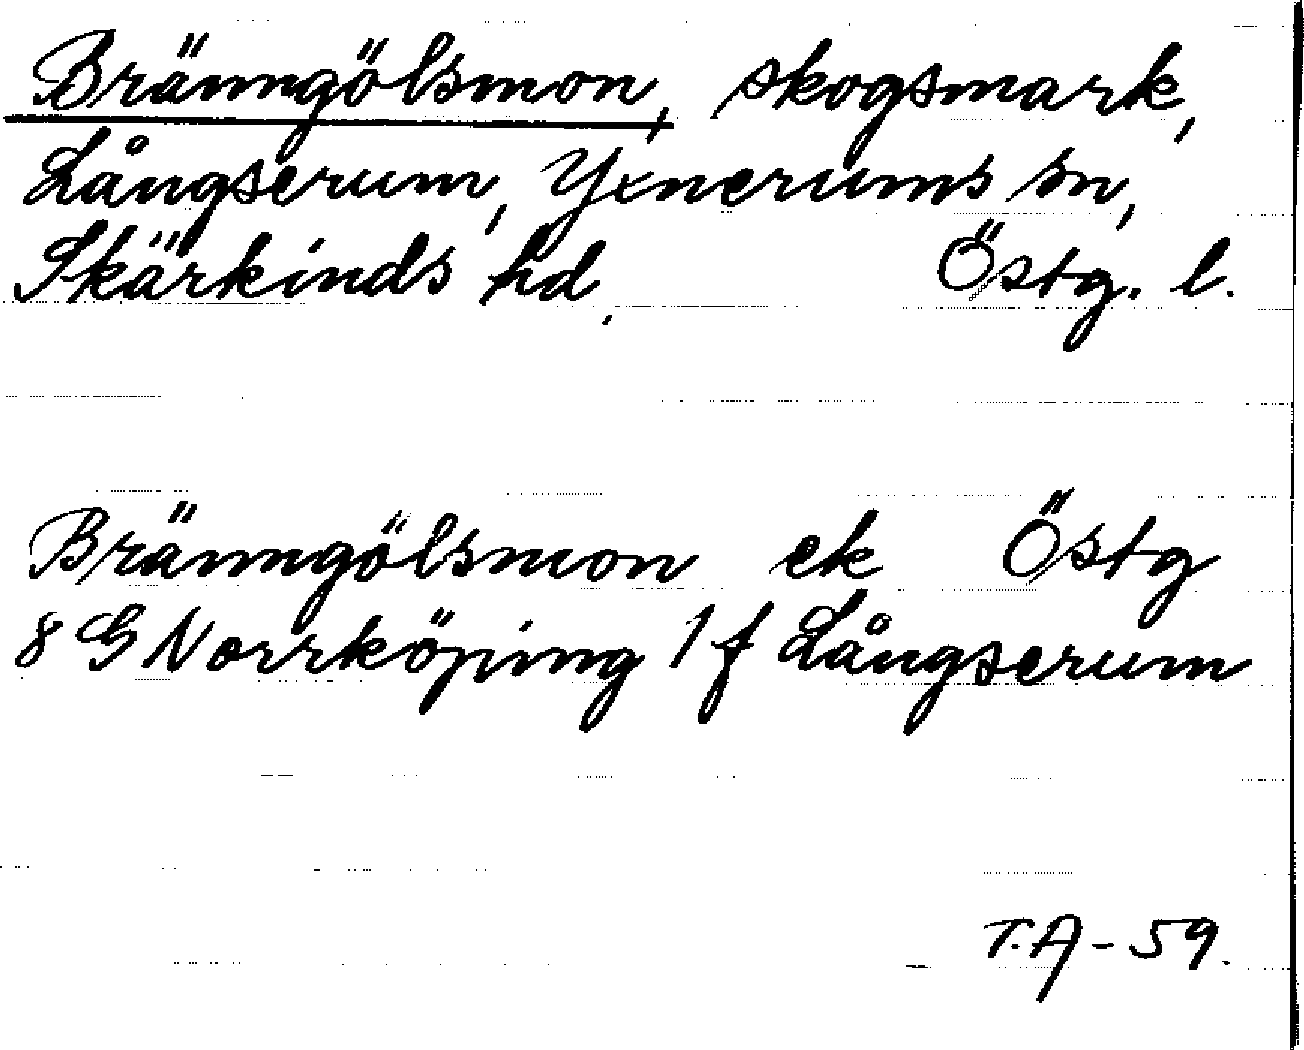 Bränngölsmon, skogsmark,
Långserum, Yxnerums sn,
Skärkinds hd. Östg. l.
Bränngölsmon ek Östg
8 G Norrköping 1 f Långserum
T.A - 59.